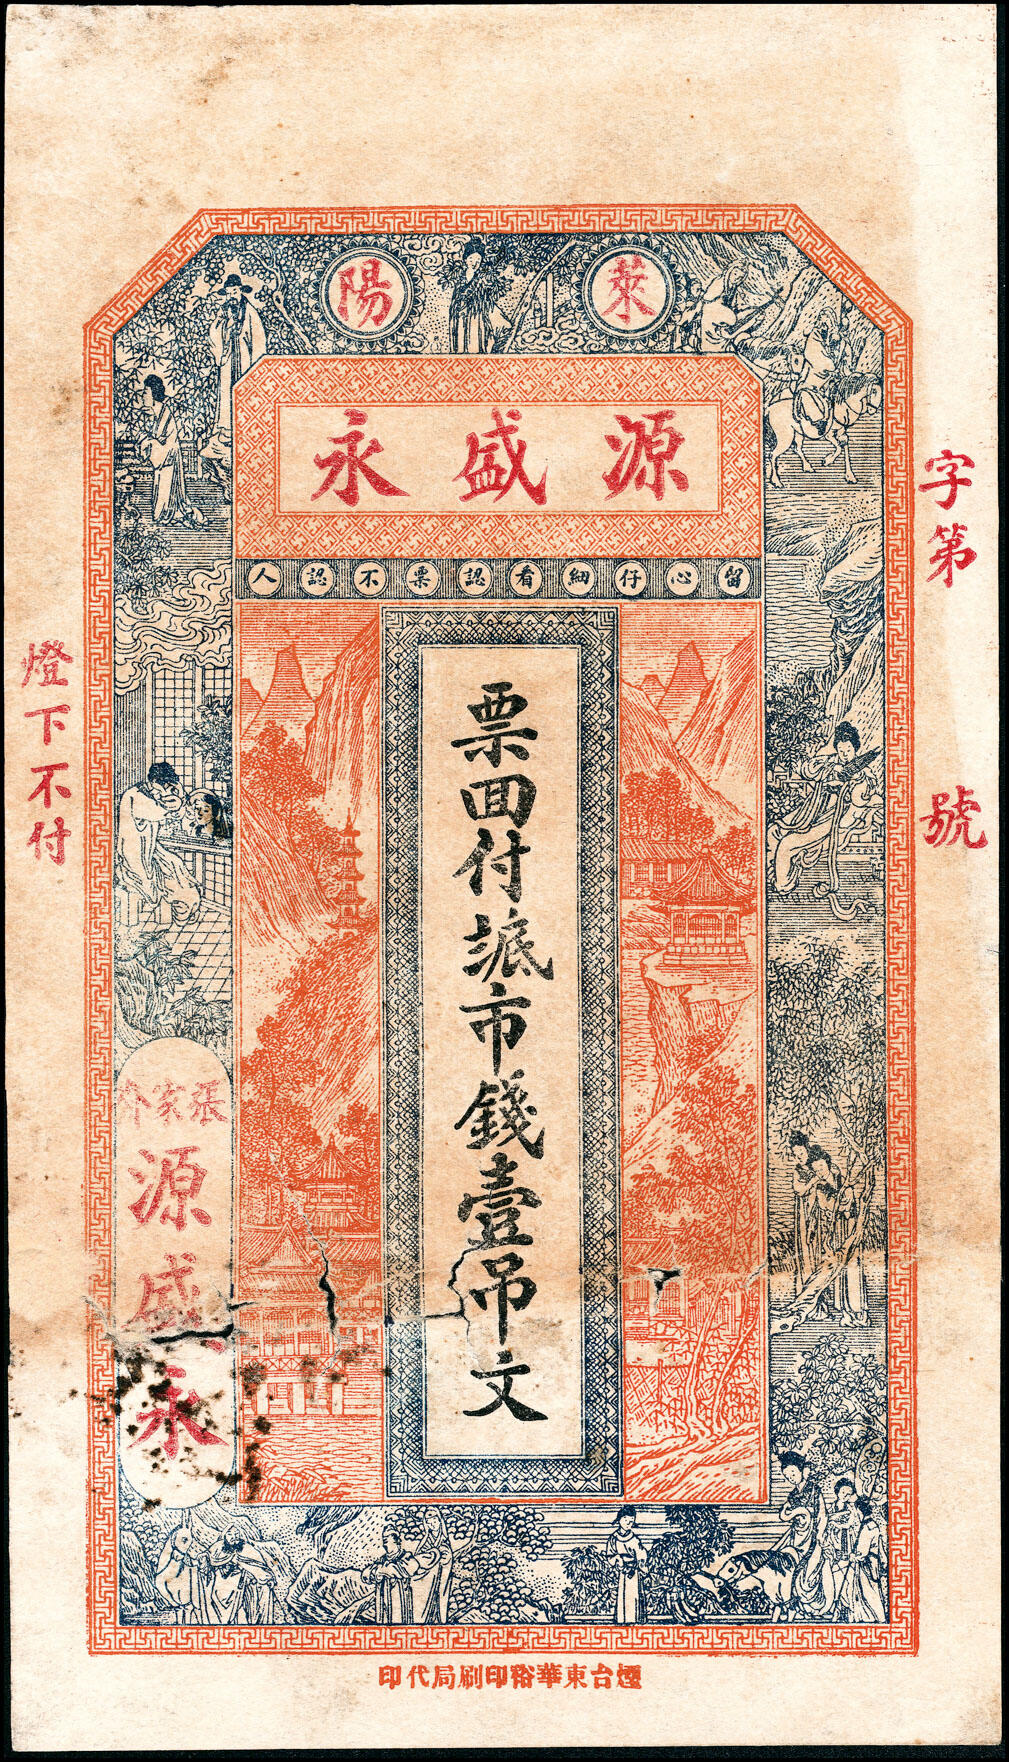 萊陽
源盛永
留心仔細看認票不認人
票回付㳀市錢壹吊文
字第　號
燈下不付
張家夼
源盛永
煙台東華裕印刷局代印